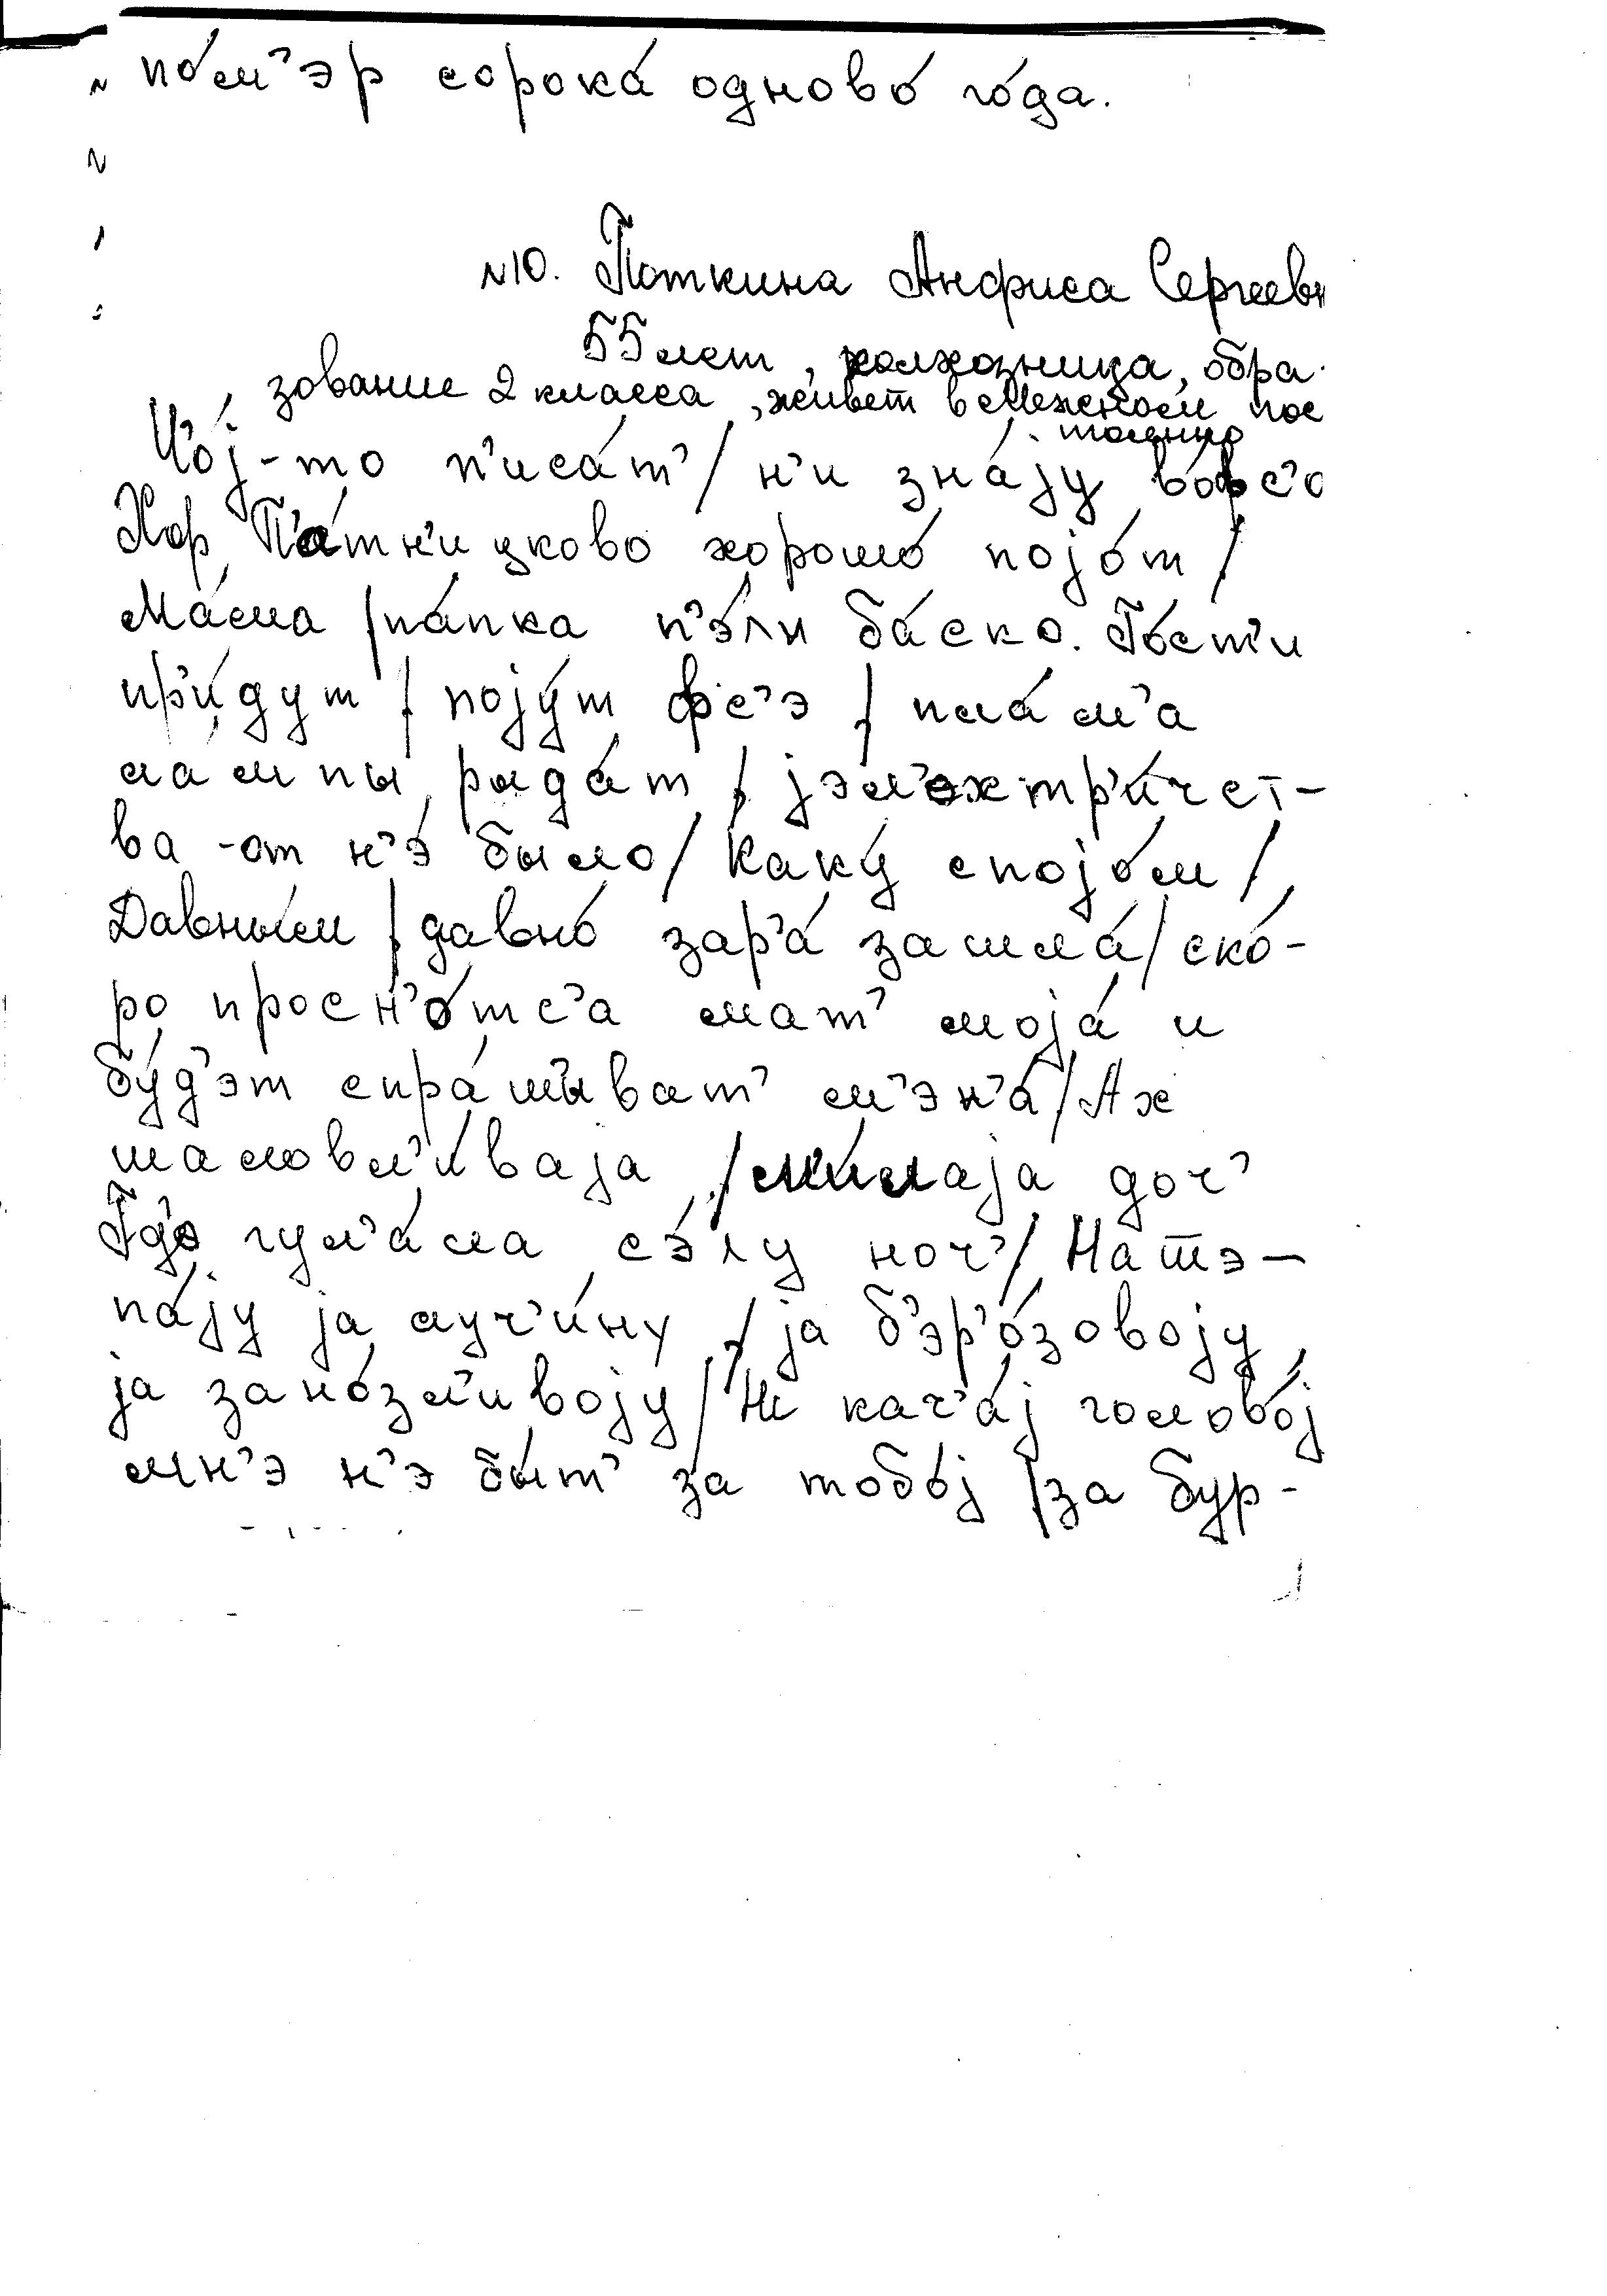 по́м'эр сорока́ одново́ го́да.
№10. Поткина Анфиса Сергеевн
55 лет, колхозница, обра-
зование 2 класса, живет в Межном пос
тоянно
Ч'о́j-то п'иса́т' / н'и зна́jу во́вс'о
Хор П'а́тн'ицково хорошо́ поjо́т /
Ма́ма / па́пка п'э́ли ба́ско. Го́ст'и
пр'и́дут / поjу́т фс'э / пла́м'а
ла́мпы рыда́т / jэл'эктр'и́чест-
ва-от н'э́ было / Каку́ споjо́м /
Давны́м / давно́ зар'а́ зашла́ / ско́-
ро просн'о́тс'а мат' моjа́ и
бу́д'эт спра́шыват' м'эн'а́ / Ах
шаловл'и́ваjа / м'и́лаjа доч'
Гд'э гул'а́ла сэ́лу ноч' / Нашэ-
па́jу jа луч'и́ну / jа б'эр'о́зовоjу
jа зано́зл'ивоjу / Н'и кач'а́j голово́j
мн'э н'э бы́т' за тобо́j / за бур-